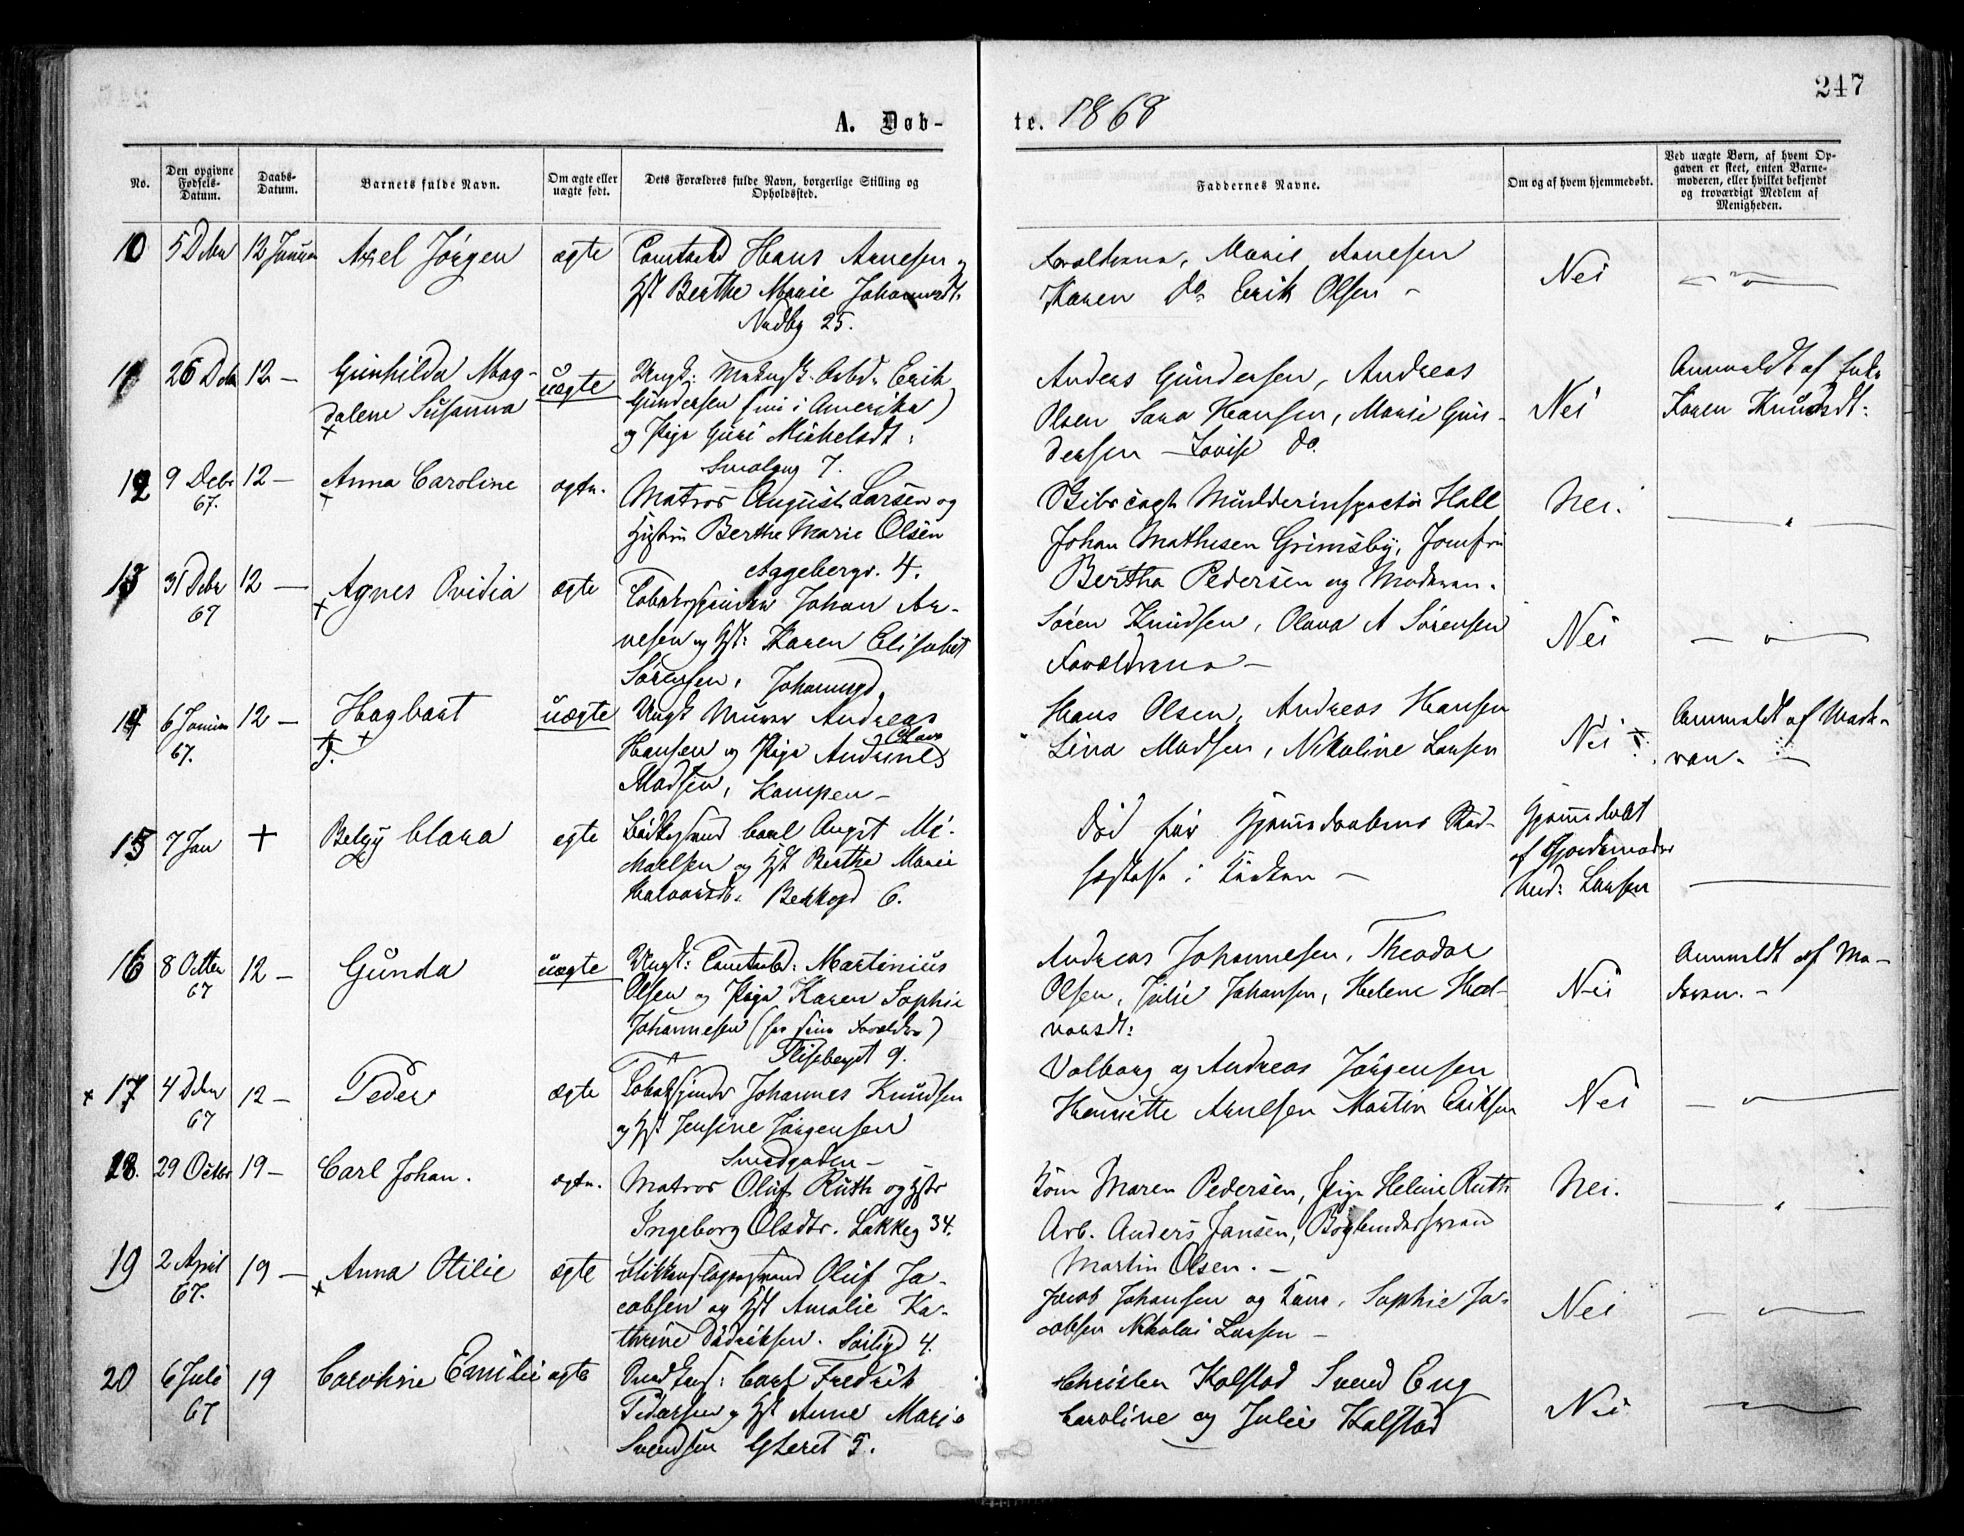 247
A. Døb-
te. 1868
No.
Den opgivne Fødsels-Datum.
Daabs-Datum.
Barnets fulde Navn.
Om ægte eller uægte født.
Dets Forældres fulde Navn, borgerlige Stilling og Opholdssted.
Faddernes Navne.
Om og af hvem hjemmedøbt.
Ved uægte Børn, af hvem Opgaven er skeet, enten Barnemoderen, eller hvilket bekjendt og troværdigt Medlem af Menigheden.
10 5 Dcbr 12 Januar Axel Jörgen ægte Constabel Hans Arnesen og
Hst Berthe Marie Johannesdt.
25.
Forældrene, Marie Arnesen
Karen do Erik Olsen –
Nei
11 26 Dcbr 12 – Gunhilda Mag-
dalene Susanna
uægte
Ungk: Arbd. Erik
Gundersen (nu i Amerika)
og Pige Guri Michelsdt:
Smalgug 7.
Anders Gundersen, Andreas
Olsen Sara Hansen, Marie Gun-
dersen – Lovise do
Nei
Anmeldt af
Karen Knudsdt:
12 9 Debr 67. 12 – Anna Caroline ægte.
Matros August Larsen og
Hustru Berthe Marie Olsen
Aagebergv. 4.
Mudderinspector Hall
Johan Mathisen Grimsby, Jomfru
Bertha Pedersen og Moderen.
Nei.
13 31 Debr 67 12 – Agnes Ovidia ægte
Tobakspinder Johan Ar-
nesen og Hst: Karen Elisabet
Sörensen, Johannesgd.
Sören Knudsen, Olava A Sörensen
Forældrene –
Nei
14 6 Januar 67. 12 – Hagbart uægte
Ungk Murer Andreas
Hansen og Pige Andrine Olava
Madsen, Kampen –
Hans Olsen, Andreas Hansen
Lina Madsen, Nikoline Larsen
Nei
Anmeldt af Mode-
ren. –
15 7 Jan + Betzy Clara egte
Carl August Mi-
kaelsen og Hst Berthe Marie
Halvorsdt. Bekkegd 6.
Död för Hjemmedaabens Stad-
fæstelse i Kirken –
Hjemmedöbt
af Gjordemoder
And: Larsen
16 8 Octbr 67 12 – Gunda uægte
Ungk: Constabel: Martinius
Olsen og Pige Karen Sophie
Johannesen (hos sine Forældre)
Flisebergt 9.
Andreas Johannesen, Theodor
Olsen, Julie Johansen, Helene Hal-
vorsdt:
Nei
Anmeldt af Mo-
deren. –
× 17 4 Dcbr 67 12 – Peder ægte
Tobakspinder Johannes Knudsen
og Hst Jensine Jörgensen
Smedgaden –
Valborg og Andreas Jörgensen
Henriette Arnesen Martin Eriksen
Nei
18. 29 Octbr 19 – Carl Johan. ægte.
Matros Oluf Ruth og Hstr
Ingeborg Olsdtr. Lakkeg 34.
Kone Maren Pedersen, Pige Heline Ruth
Arb. Anders Jansen, Bogbindersvend
Martin Olsen. –
Nei.
19 2 April 67. 19 – Anna Otilie ægte
Oluf Ja-
cobsen og Hst Amalie Ka-
thrine Didriksen. 4.
Jacob Johansen og Kone, Sophie Ja-
cobsen Nikolai Larsen –
Nei
20 6 Juli 67 19 Caroline Emilie ægte
Carl Fredrik
Pedersen og Hst Anne Marie
Svendsen Gteret 5.
Christen Kolstad Svend Eng
Caroline og Julie Kolstad
Nei